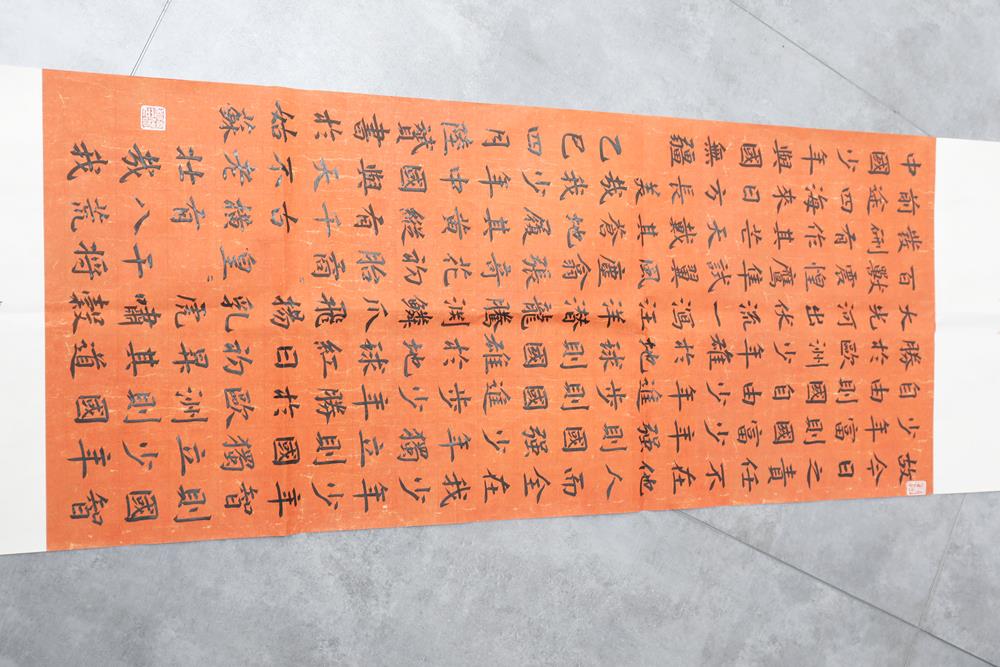 故今日之責任不在他人而全在我少年智則國智
少年富則國富少年强則國强少年獨立則國獨立少年
自由則國自由少年進步則國進步少年勝於歐洲則國
勝於歐洲少年雄於地球則國雄於地球紅日初昇其道
大光河出伏流一瀉汪洋潜龍騰淵鱗爪飛揚乳虎嘯穀
百獸震惶鷹隼試翼風塵翕張奇花初胎矞々皇々干將
發硎有作其芒天戴其蒼地履其黄縱有千古横有八荒
前途四海來日方長美哉我少年中國與天不老壯哉我
中國少年與國無疆 乙巳四月陸贇書於姑蘇